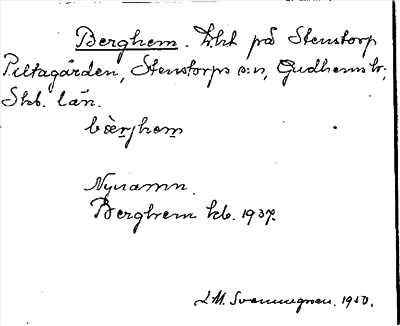 Berghem. Lht på Stenstorp
Piltagården, Stenstorps s:n, Gudhems hr;
Skb. län.
bæ̀rjhem
Nynamn.
Berghem kb. 1937.
L.M. Svenungsson. 1950.